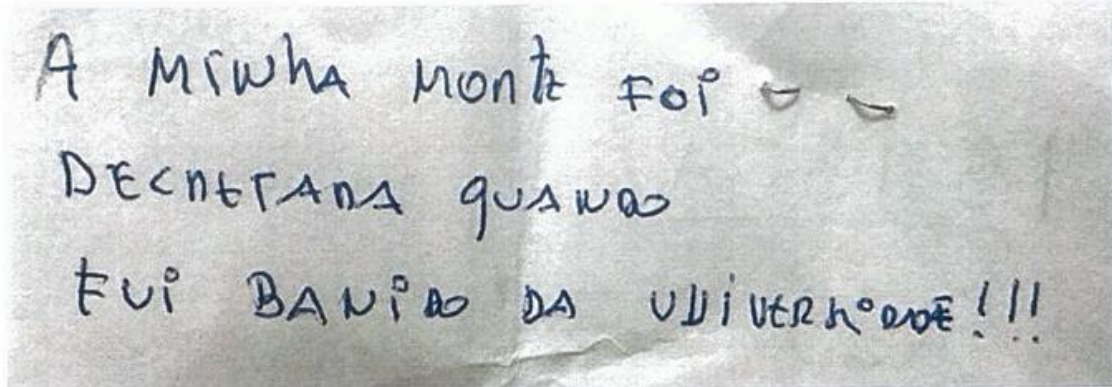 A MINHA MORTE FOI - -
DECRETADA QUANDO
FUI BANIDO DA UNIVERSIDADE!!!